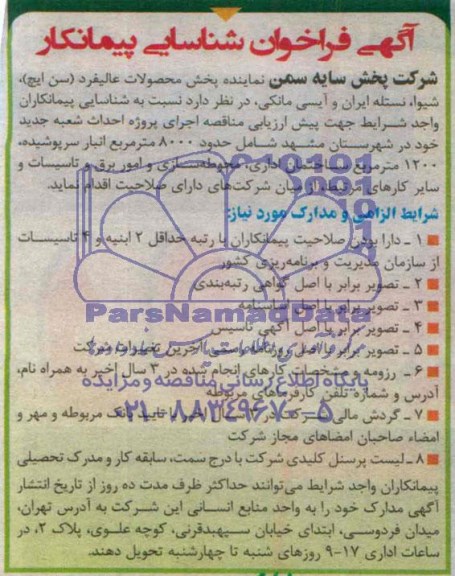 آگهی فراخوان شناسایی پیمانکار
شرکت پخش سایه سمن نماینده پخش محصولات عالیفرد (سن ایچ)،
شیوا، نستله ایران و آیسی مانکی، در نظر دارد نسبت به شناسایی پیمانکاران
واجد شرایط جهت پیش ارزیابی مناقصه اجرای پروژه احداث شعبه جدید
خود در شهرستان مشهد شامل حدود ۸۰۰۰ مترمربع انبار سرپوشیده،
۱۲۰۰ مترمربع ساختمان اداری، محوطه‌سازی و امور برق و تاسیسات و
سایر کارهای مرتبط، از میان شرکت‌های دارای صلاحیت اقدام نماید.
شرایط الزامی و مدارک مورد نیاز:
۱ - دارا بودن صلاحیت پیمانکاران با رتبه حداقل ۲ ابنیه و ۴ تاسیسات
از سازمان مدیریت و برنامه‌ریزی کشور
۲ - تصویر برابر با اصل گواهی رتبه‌بندی
۳ - تصویر برابر با اصل اساسنامه
۴ - تصویر برابر با اصل آگهی تاسیس
۵ - تصویر برابر با اصل روزنامه رسمی آخرین تغییرات شرکت
۶ - رزومه و مشخصات کارهای انجام شده در ۳ سال اخیر به همراه نام،
آدرس و شماره تلفن کارفرماهای مربوطه
۷ - گردش مالی شرکت در سال اخیر با تایید بانک مربوطه و مهر و
امضاء صاحبان امضاهای مجاز شرکت
۸ - لیست پرسنل کلیدی شرکت با درج سمت، سابقه کار و مدرک تحصیلی
پیمانکاران واجد شرایط می‌توانند حداکثر ظرف مدت ده روز از تاریخ انتشار
آگهی مدارک خود را به واحد منابع انسانی این شرکت به آدرس تهران،
میدان فردوسی، ابتدای خیابان سپهبدقرنی، کوچه علوی، پلاک ۲، در
ساعات اداری ۱۷-۹ روزهای شنبه تا چهارشنبه تحویل دهند.
ParsNamadData
پایگاه اطلاع رسانی مناقصه و مزایده
۰۲۱-۸۸۳۴۹۶۷۰-۵